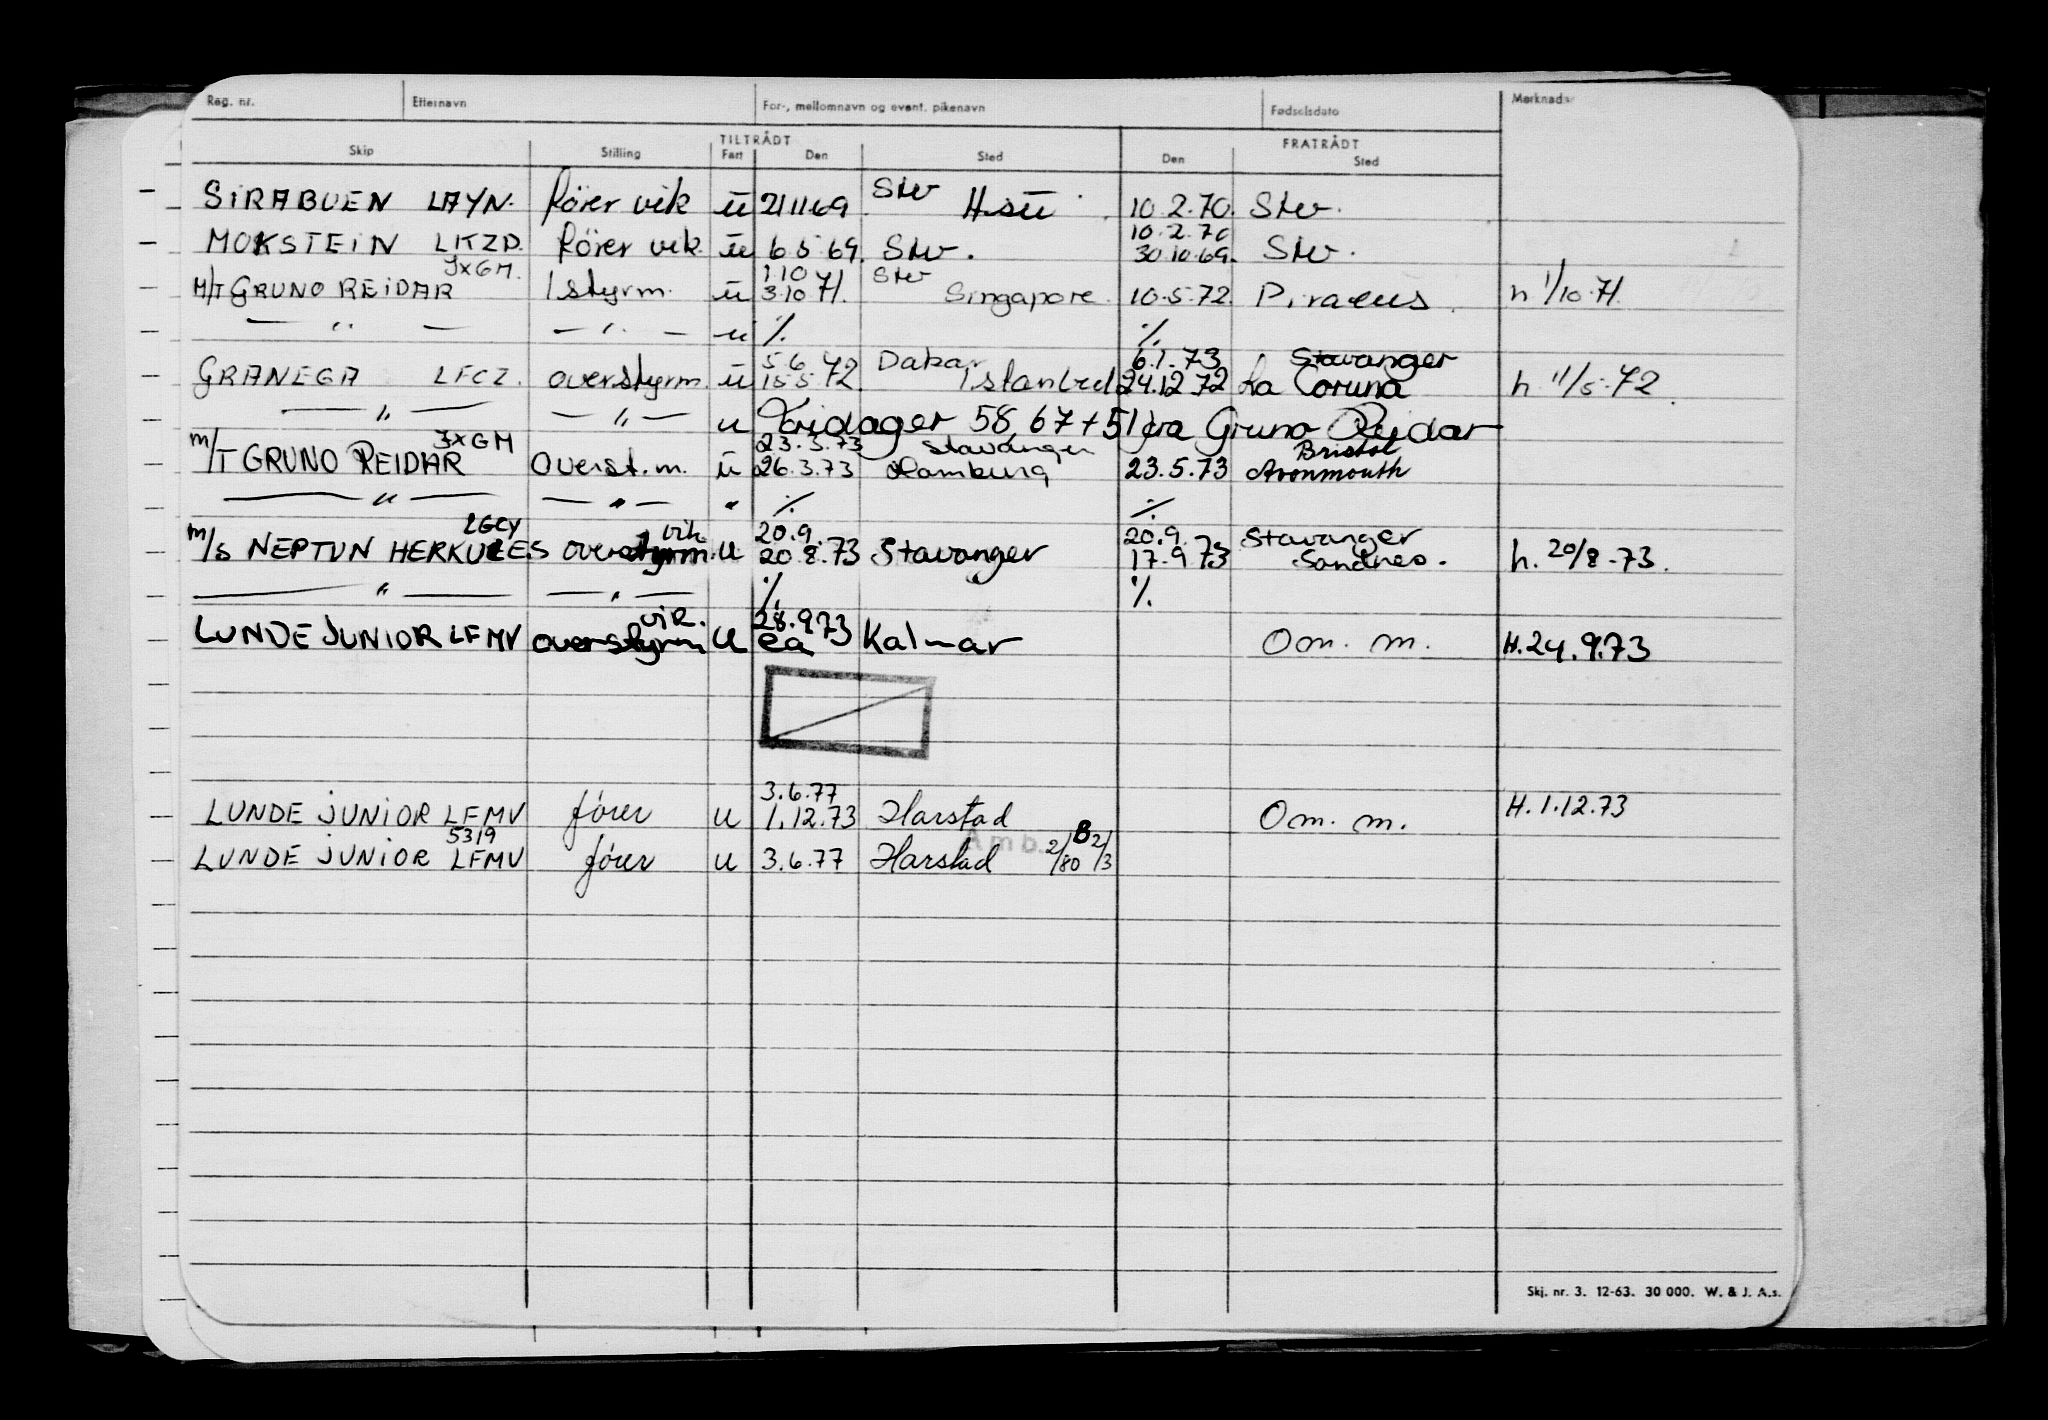 Reg. nr. Efternavn For-, mellomnavn og event. pikenavn Fødselsdato Merknader
TILTRÅDT FRATRÅDT
Skip Stilling Fart Den Sted Den Sted
SIRABUEN LAYN. förer vik ū 21 11 69 Stv H.sū 10.2.70. Stv.
10.2.70
MOKSTEIN LKZD. förer vik. ū 6 5 69. Stv. 30 10 69. Stv.
JXGM. 1 10 Stv
M/T GRUNO REIDAR 1 styrm. ū 3 10 71. Singapore. 10.5.72. Piraeus. h 1/10.71.
— " — — " — u ./. ./.
5 6 Dakar 6.1.73 Stavanger
GRANEGA LFCZ. overstyrm. ū 15 5 72 Istanbul 24.12.72 La Coruna h. 11/5.72.
— " — — " — u Fridager 58 67 + 51 fra Gruno Reidar
JXGM 23.3.73 Stavanger Bristol
m/T GRUNO REIDAR Overst.m. ū 26.3.73 Hamburg 23.5.73 Avonmouth
— " — — " — " ./. ./.
LGCY vik 20.9. 20.9. Stavanger
m/s NEPTUN HERKULES overstyrm. u 20.8.73 Stavanger 17.9.73 Sandnes. h. 20/8-73.
— " — — " — ./. ./.
vik. 28.9.73
LUNDE JUNIOR LFMV overstyrm u ca Kalmar Om. m. H.24.9.73
3.6.77
LUNDE JUNIOR LFMV fører u 1.12.73 Harstad Om. m. H.1.12.73
5319 Amb. B
LUNDE JUNIOR LFMV fører u 3.6.77 Harstad 2/80 2/3
Skj. nr. 3. 12-63. 30 000. W. & J. A.s.